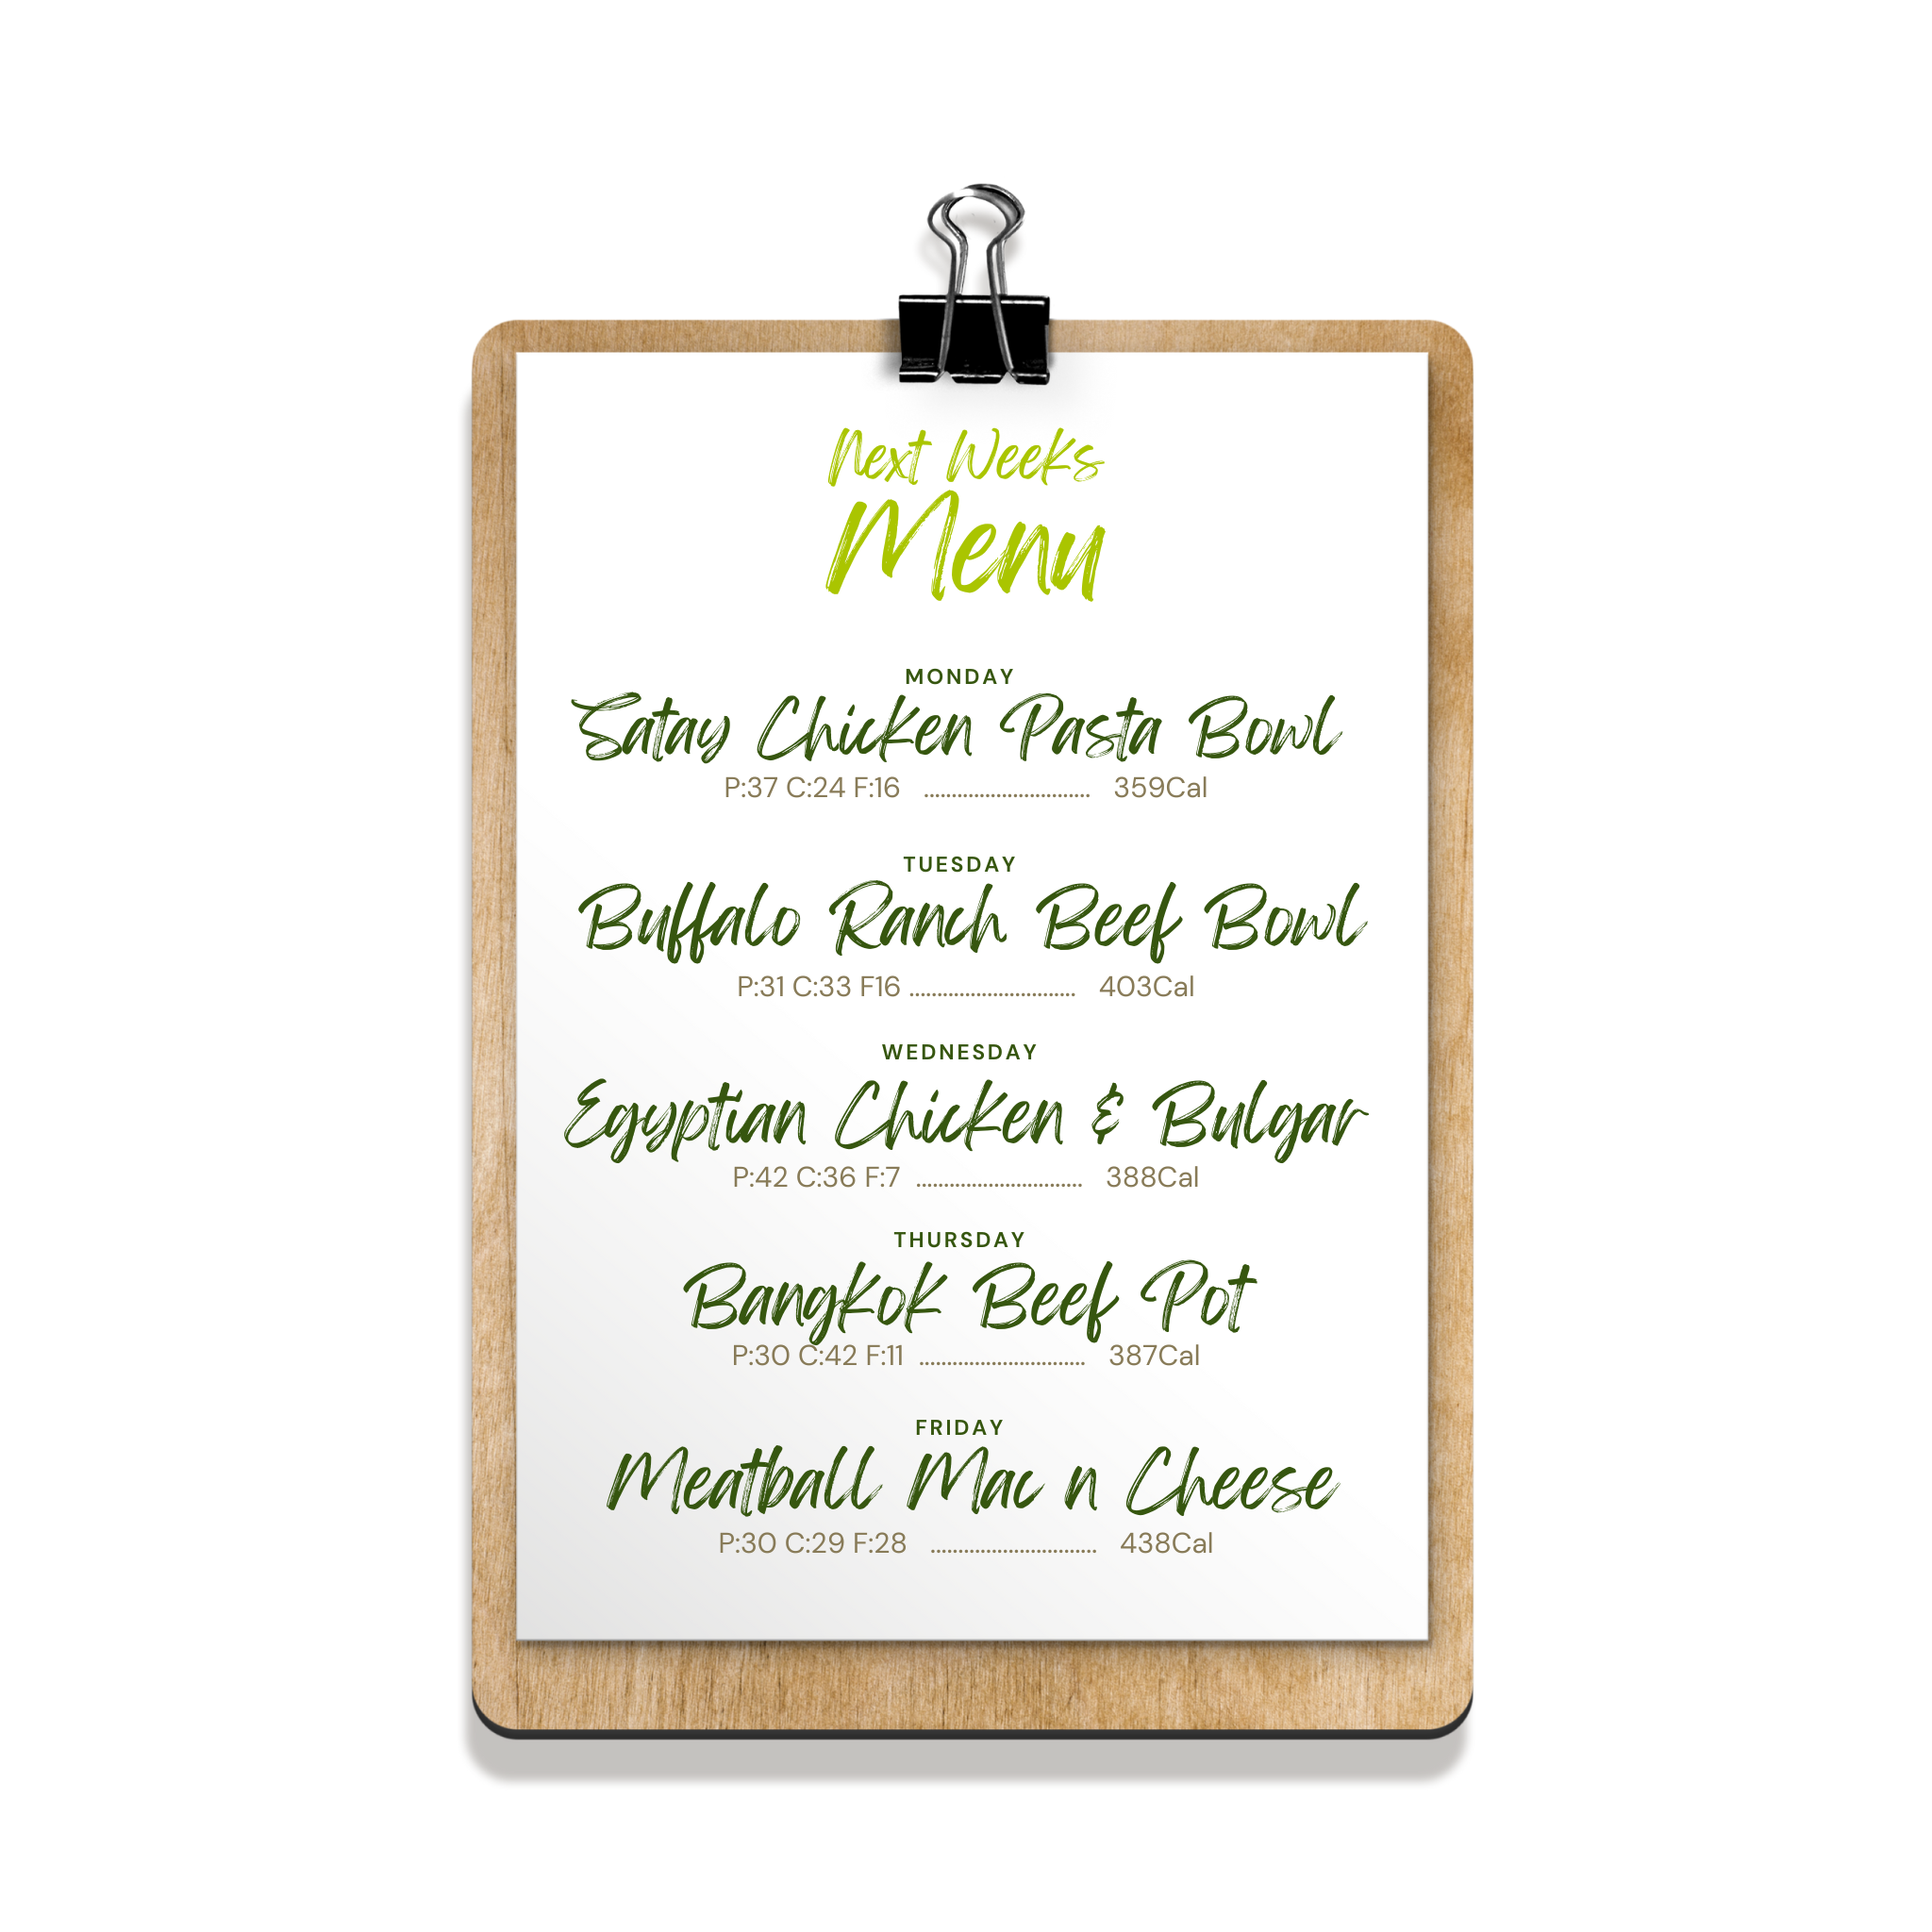 Next Weeks
Menu
MONDAY
Satay Chicken Pasta Bowl
P:37 C:24 F:16 .............................. 359Cal
TUESDAY
Buffalo Ranch Beef Bowl
P:31 C:33 F16 .............................. 403Cal
WEDNESDAY
Egyptian Chicken & Bulgar
P:42 C:36 F:7 .............................. 388Cal
THURSDAY
Bangkok Beef Pot
P:30 C:42 F:11 .............................. 387Cal
FRIDAY
Meatball Mac n Cheese
P:30 C:29 F:28 .............................. 438Cal